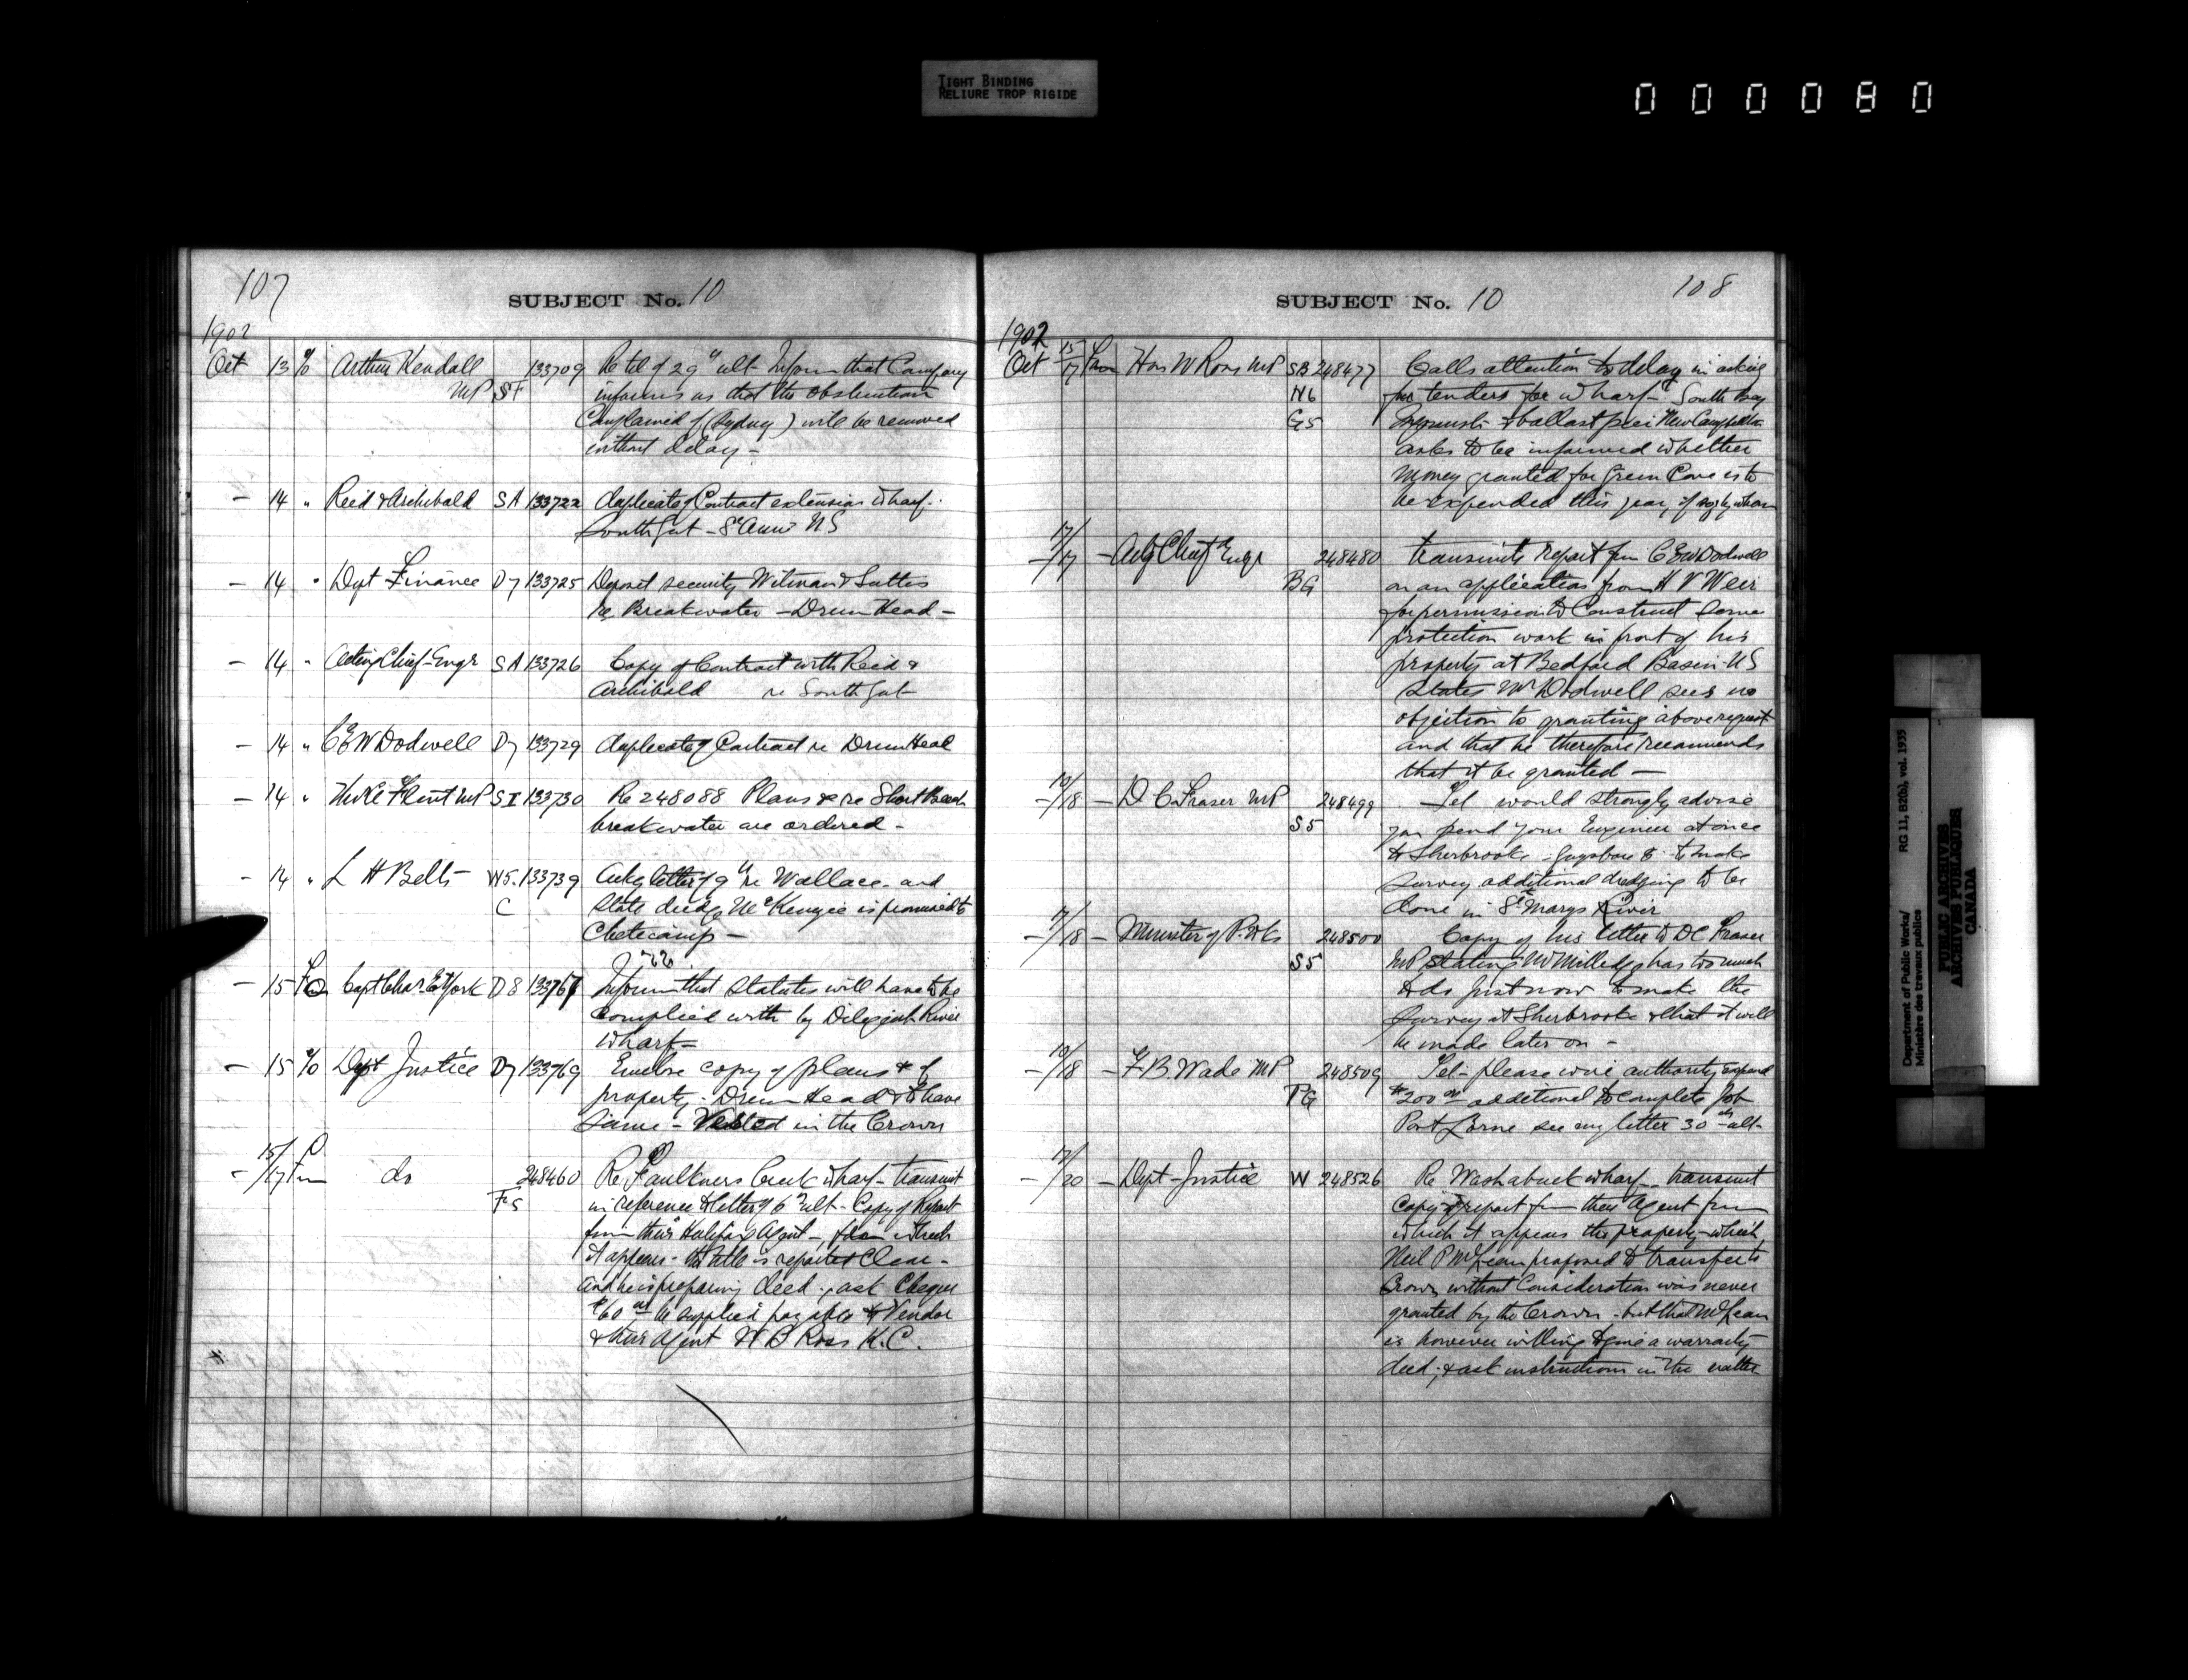 TIGHT BINDING
RELIURE TROP RIGIDE
000080
107
SUBJECT No. 10
1902
Oct 13 % Arthur Kendall 133709 Re tel of 29th ult Inform that Company
MP SF informs us that the obstruction
Complained of (Sydney) will be removed
without delay —
— 14 " Reid & Archibald SA 133722 duplicate of Contract extension wharf.
South Gut — St Anns NS
— 14 " Dept Finance D7 133725 Deposit security
re Breakwater — Drum Head —
— 14 " Acting Chief Engr SA 133726 Copy of Contract with Reid &
Archibald re South Gut
— 14 " C E W Dodwell D7 133729 duplicate of Contract re Drum Head
— 14 " Flint MP SI 133730 Re 248088 Plans &c re Short Beach
breakwater are ordered —
— 14 " L H Betts W5. 133739 letter of 9th re Wallace and
C state dredge McKenzie is promised to
Chetecamp —
— 15 Capt Chas E York D8 13376 Inform that Statutes will have to be
complied with by Diligent River
wharf —
— 15 % Dept Justice D7 133769 Enclose copy of plans & of
property. Drum Head & to have
same — Vested in the Crown
15/
— /17 Fm do 248460 Re Faulkners Creek wharf — transmit
F5 in reference to letter of 6th ult — Copy of Report
from their Halifax Agent —, from which
it appears — that title is reported Clear —
and he is preparing deed. ask Cheque
$60 00 be supplied payable to Vendor
& their Agent W B Ross K.C.
SUBJECT No. 10
108
1902
Oct 15/17 From Hon W Ross MP SB 248477 Calls attention to delay in asking
N6 for tenders for wharf South Bay
G5 Ingonish & ballast pier New Campbellton
asks to be informed whether
money granted for Green Cove is to
be expended this year, if so, by whom
17/
— /17 — Actg Chief Engr 248480 transmits report from C E W Dodwell
BG on an application from H V Weir
for permission to Construct some
protection work in front of his
property at Bedford Basin NS
States Mr Dodwell sees no
objection to granting above request
and that he therefore recommends
that it be granted —
— /18 — D C Fraser MP 248499 Tel would strongly advise
S5 you send your Engineer at once
to Sherbrooke — Guysboro to make
survey additional dredging to be
done in St Marys River
17/
— /18 — Minister of P. Wks 248500 Copy of his letter to D C Fraser
S5 MP stating Mr Milledge has too much
to do just now to make the
survey at Sherbrooke & that it will
be made later on —
— /18 — F B Wade MP 248509 Tel — please wire authority expend
PG $200 00 additional to complete job
Port Lorne see my letter 30th ult —
17/
— /20 — Dept Justice W 248526 Re Washabuck wharf — transmit
Copy of report from their Agent from
which it appears the property which
Neil P McLean proposed to transfer to
Crown without Consideration was never
granted by the Crown — but that McLean
is however willing to give a warranty
deed; & ask instructions in the matter
Department of Public Works/ RG 11, B2(b), vol. 1935
Ministère des travaux publics
PUBLIC ARCHIVES
ARCHIVES PUBLIQUES
CANADA